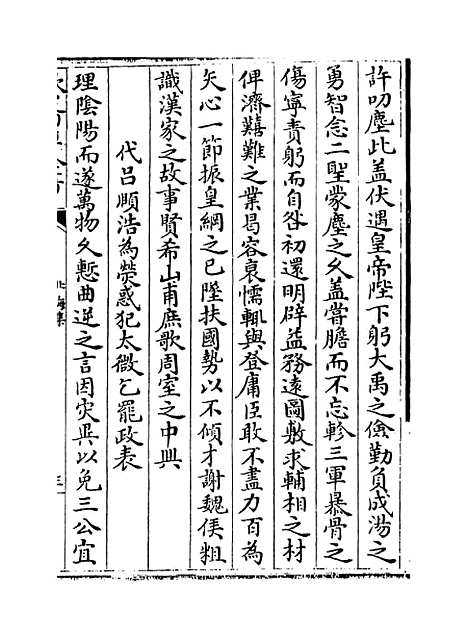 許叨塵此盖伏遇皇帝陛下躬大禹之儉勤負成湯之
勇智念二聖蒙塵之久盖嘗膽而不忘軫三軍暴骨之
傷寧責躬而自咎初還明辟益務逺圖敷求輔相之材
俾濟囏難之業曷容衰懦輒與登庸臣敢不盡力百為
矢心一節振皇綱之已墜扶國勢以不傾才謝魏侯粗
識漢家之故事賢希山甫庶歌周室之中興
代吕頤浩為熒惑犯太微乞罷政表
理陰陽而遂萬物久慙曲逆之言因灾異以免三公宜
北海集
三